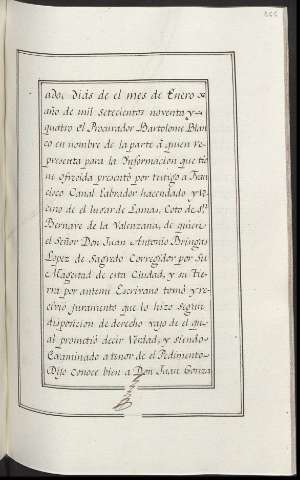 adoc dias de el mes de Enero de
año de mil setecientos noventa y
quatro el Procurador Bartolome Blan
co en nombre de la parte á quien re-
presenta para la Informacion que tie
ne ofrezida presentó por testigo a Fran
cisco Canal Labrador hacendado y ve
cino de el lugar de Lamas, Coto de Sn
Bernave de la Valenzana, de quien
el Señor Don Juan Antonio Bringas
Lopez de Sagredo Corregidor por Su
Magestad de esta Ciudad, y su Tie
rra por antemi Escrivano tomó y re-
civió juramento que lo hizo segun
disposicion de derecho vajo de el qu
al prometió decir Verdad, y siendo
Examinado a tenor de el Pedimento
Dijo conoce bien a Don Juan Gonza